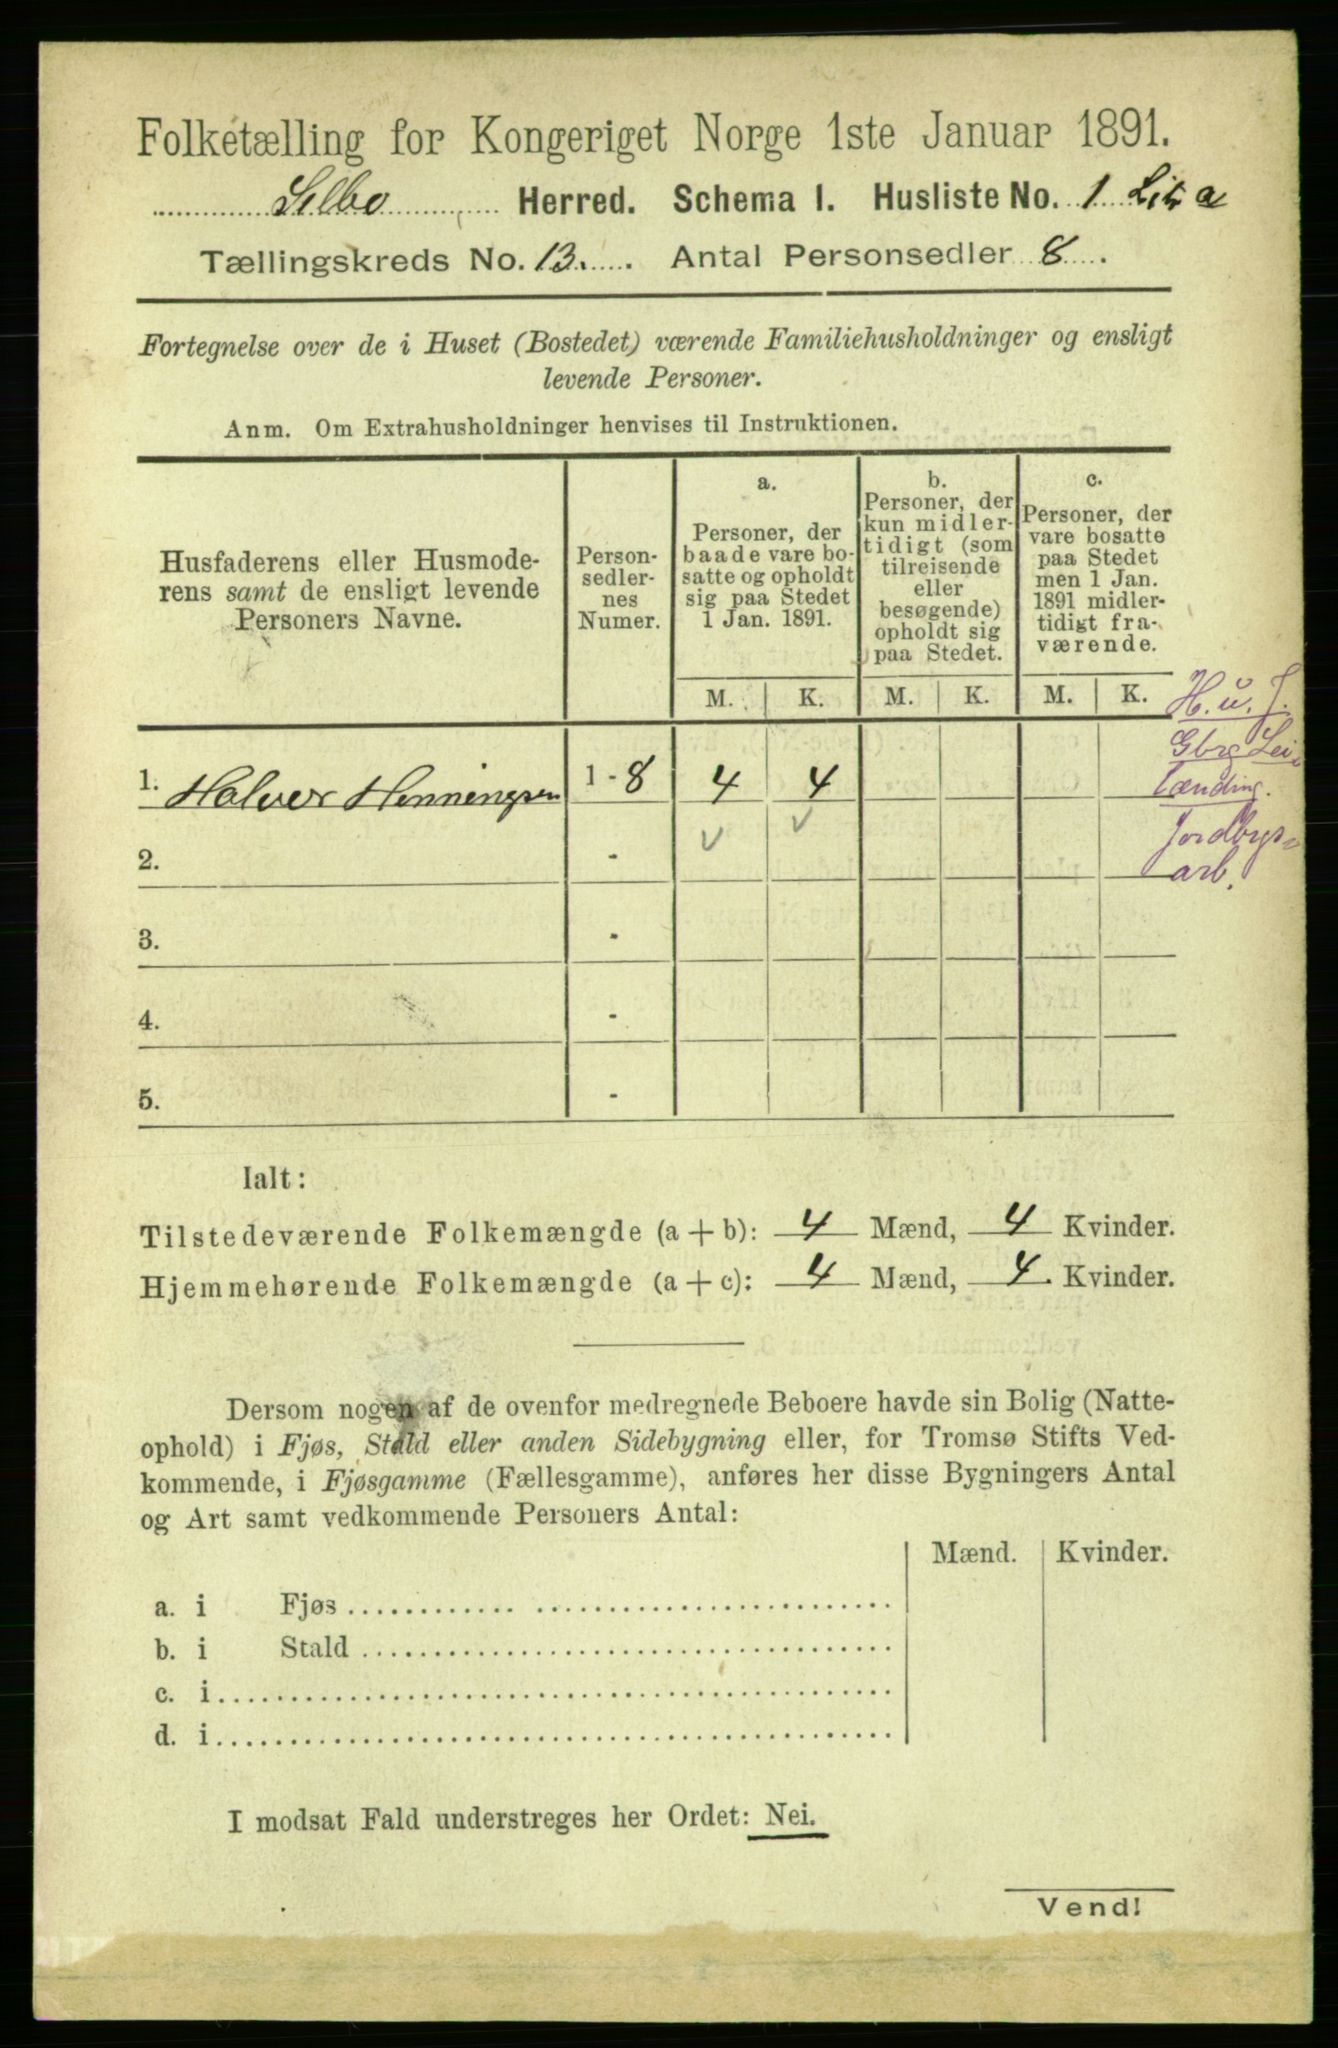 Folketælling for Kongeriget Norge 1ste Januar 1891.
Selbo Herred. Schema I. Husliste No. 1 Lit a
Tællingskreds No. 13. Antal Personsedler 8.
Fortegnelse over de i Huset (Bostedet) værende Familiehusholdninger og ensligt
levende Personer.
Anm. Om Extrahusholdninger henvises til Instruktionen.
Husfaderens eller Husmode-
rens samt de ensligt levende
Personers Navne.
Person-
sedler-
nes
Numer.
a.
Personer, der
baade vare bo-
satte og opholdt
sig paa Stedet
1 Jan. 1891.
b.
Personer, der
kun midler-
tidigt (som
tilreisende
eller
besøgende)
opholdt sig
paa Stedet.
c.
Personer, der
vare bosatte
paa Stedet
men 1 Jan.
1891 midler-
tidigt fra-
værende.
M. K. M. K. M. K.
H. u. J.
Gbrg Lei
lænding.
Jordbrgs-
arb.
1. Halvor Henningsen 1 - 8 4 4
2. -
3. -
4. -
5. -
Ialt:
Tilstedeværende Folkemængde (a + b): 4 Mænd, 4 Kvinder.
Hjemmehørende Folkemængde (a + c): 4 Mænd, 4. Kvinder.
Dersom nogen af de ovenfor medregnede Beboere havde sin Bolig (Natte-
ophold) i Fjøs, Stald eller anden Sidebygning eller, for Tromsø Stifts Ved-
kommende, i Fjøsgamme (Fællesgamme), anføres her disse Bygningers Antal
og Art samt vedkommende Personers Antal:
Mænd. Kvinder.
a. i Fjøs
b. i Stald
c. i
d. i
I modsat Fald understreges her Ordet: Nei.
Vend!